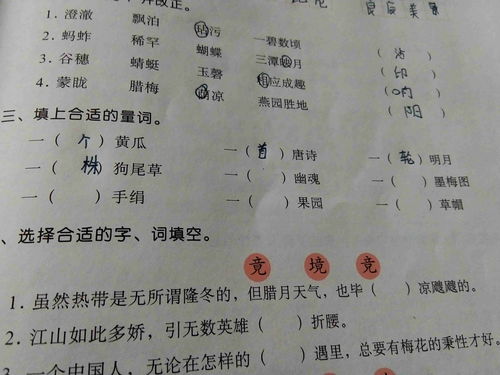 并改正。
1.澄澈 飘泊 玷污 一碧数顷 (沾)
2.蚂蚱 稀罕 蝴蝶 三潭映月 (印)
3.谷穗 蜻蜓 玉磬 相应成趣
4.蒙胧 腊梅 荫凉 燕园胜地 (阴)
三、填上合适的量词。
一(个)黄瓜 一(首)唐诗 一(轮)明月
一(株)狗尾草 一( )幽魂 一( )墨梅图
一( )手绢 一( )果园 一( )草帽
、选择合适的字、词填空。
竟 境 竞
1.虽然热带是无所谓隆冬的,但腊月天气,也毕( )凉飕飕的。
2.江山如此多娇,引无数英雄( )折腰。
3.一个中国人,无论在怎样的( )遇里,总要有梅花的秉性才好。